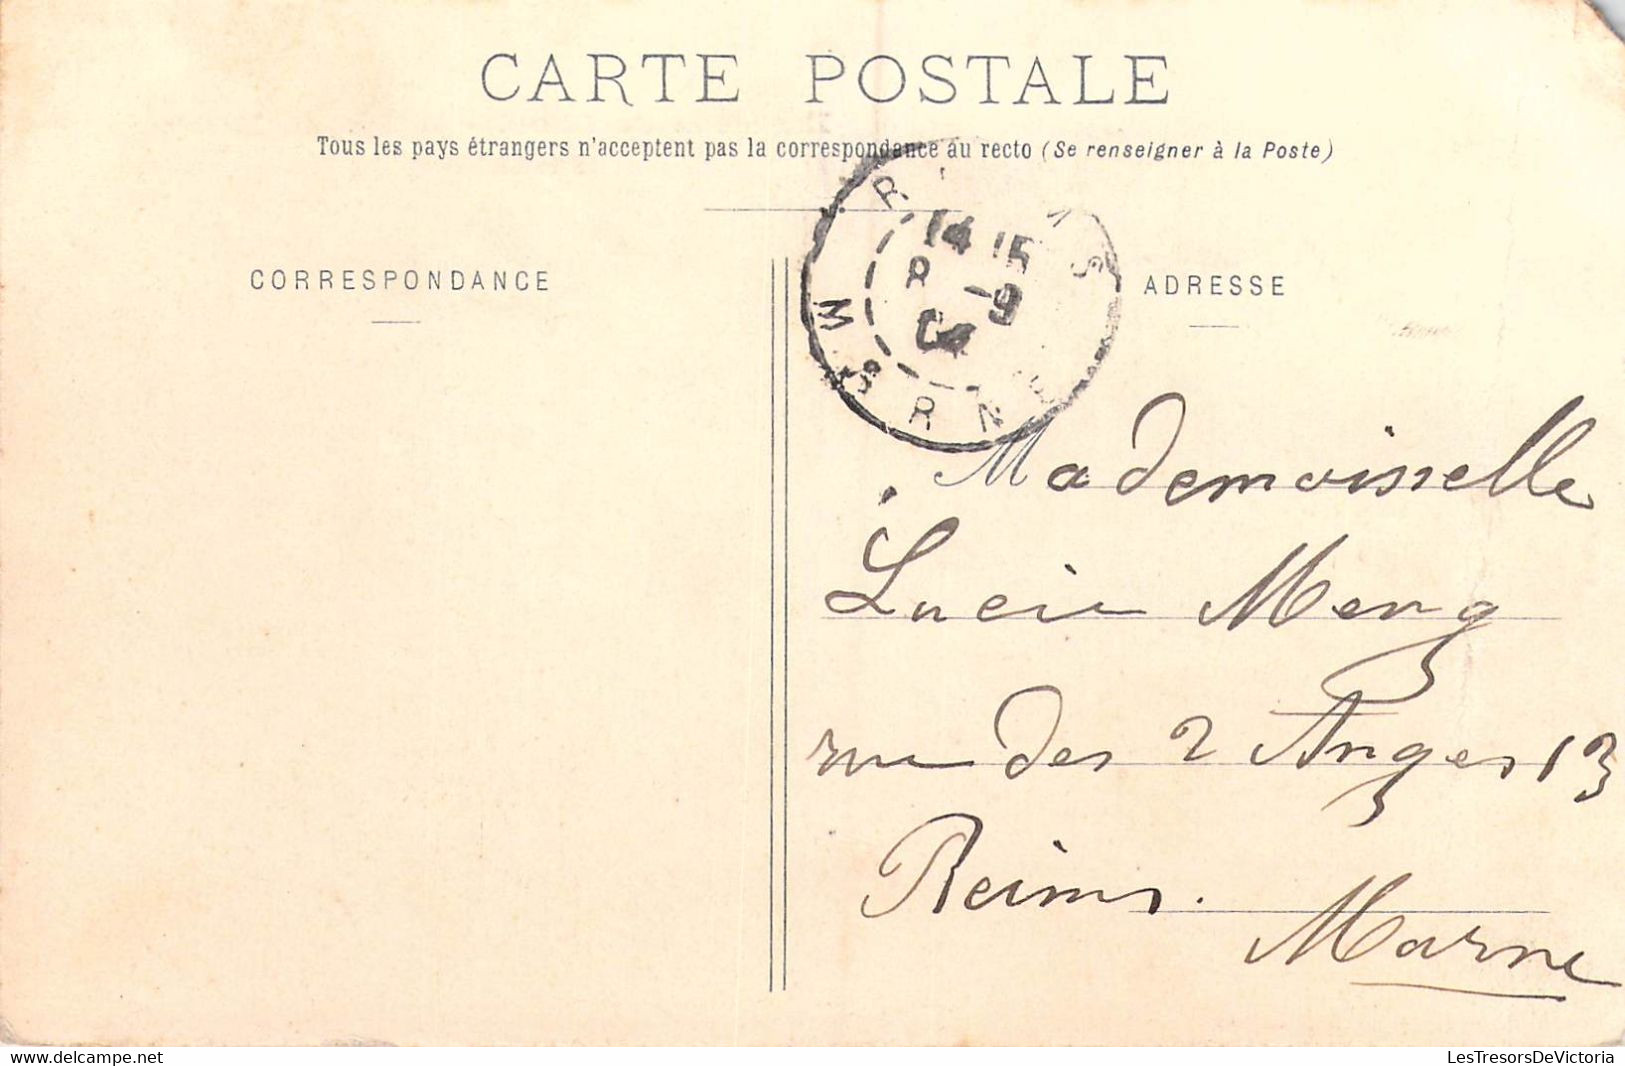 CARTE POSTALE
Tous les pays étrangers n'acceptent pas la correspondance au recto (Se renseigner à la Poste)
14 15
8 -9
04
MARNE
CORRESPONDANCE
ADRESSE
Mademoiselle
Lucie Meng
rue des 2 Anges 13
Reims.
Marne
www.delcampe.net
LesTresorsDeVictoria